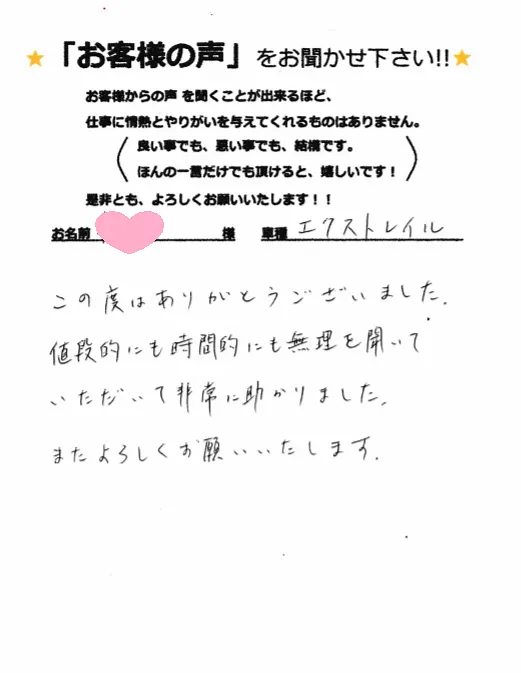 ★「お客様の声」をお聞かせ下さい!!★
お客様からの声 を聞くことが出来るほど、
仕事に情熱とやりがいを与えてくれるものはありません。
良い事でも、悪い事でも、結構です。
ほんの一言だけでも頂けると、嬉しいです！
是非とも、よろしくお願いいたします！！
お名前 様 車種 エクストレイル
この度はありがとうございました.
値段的にも時間的にも無理を聞いて
いただいて非常に助かりました.
またよろしくお願いいたします.